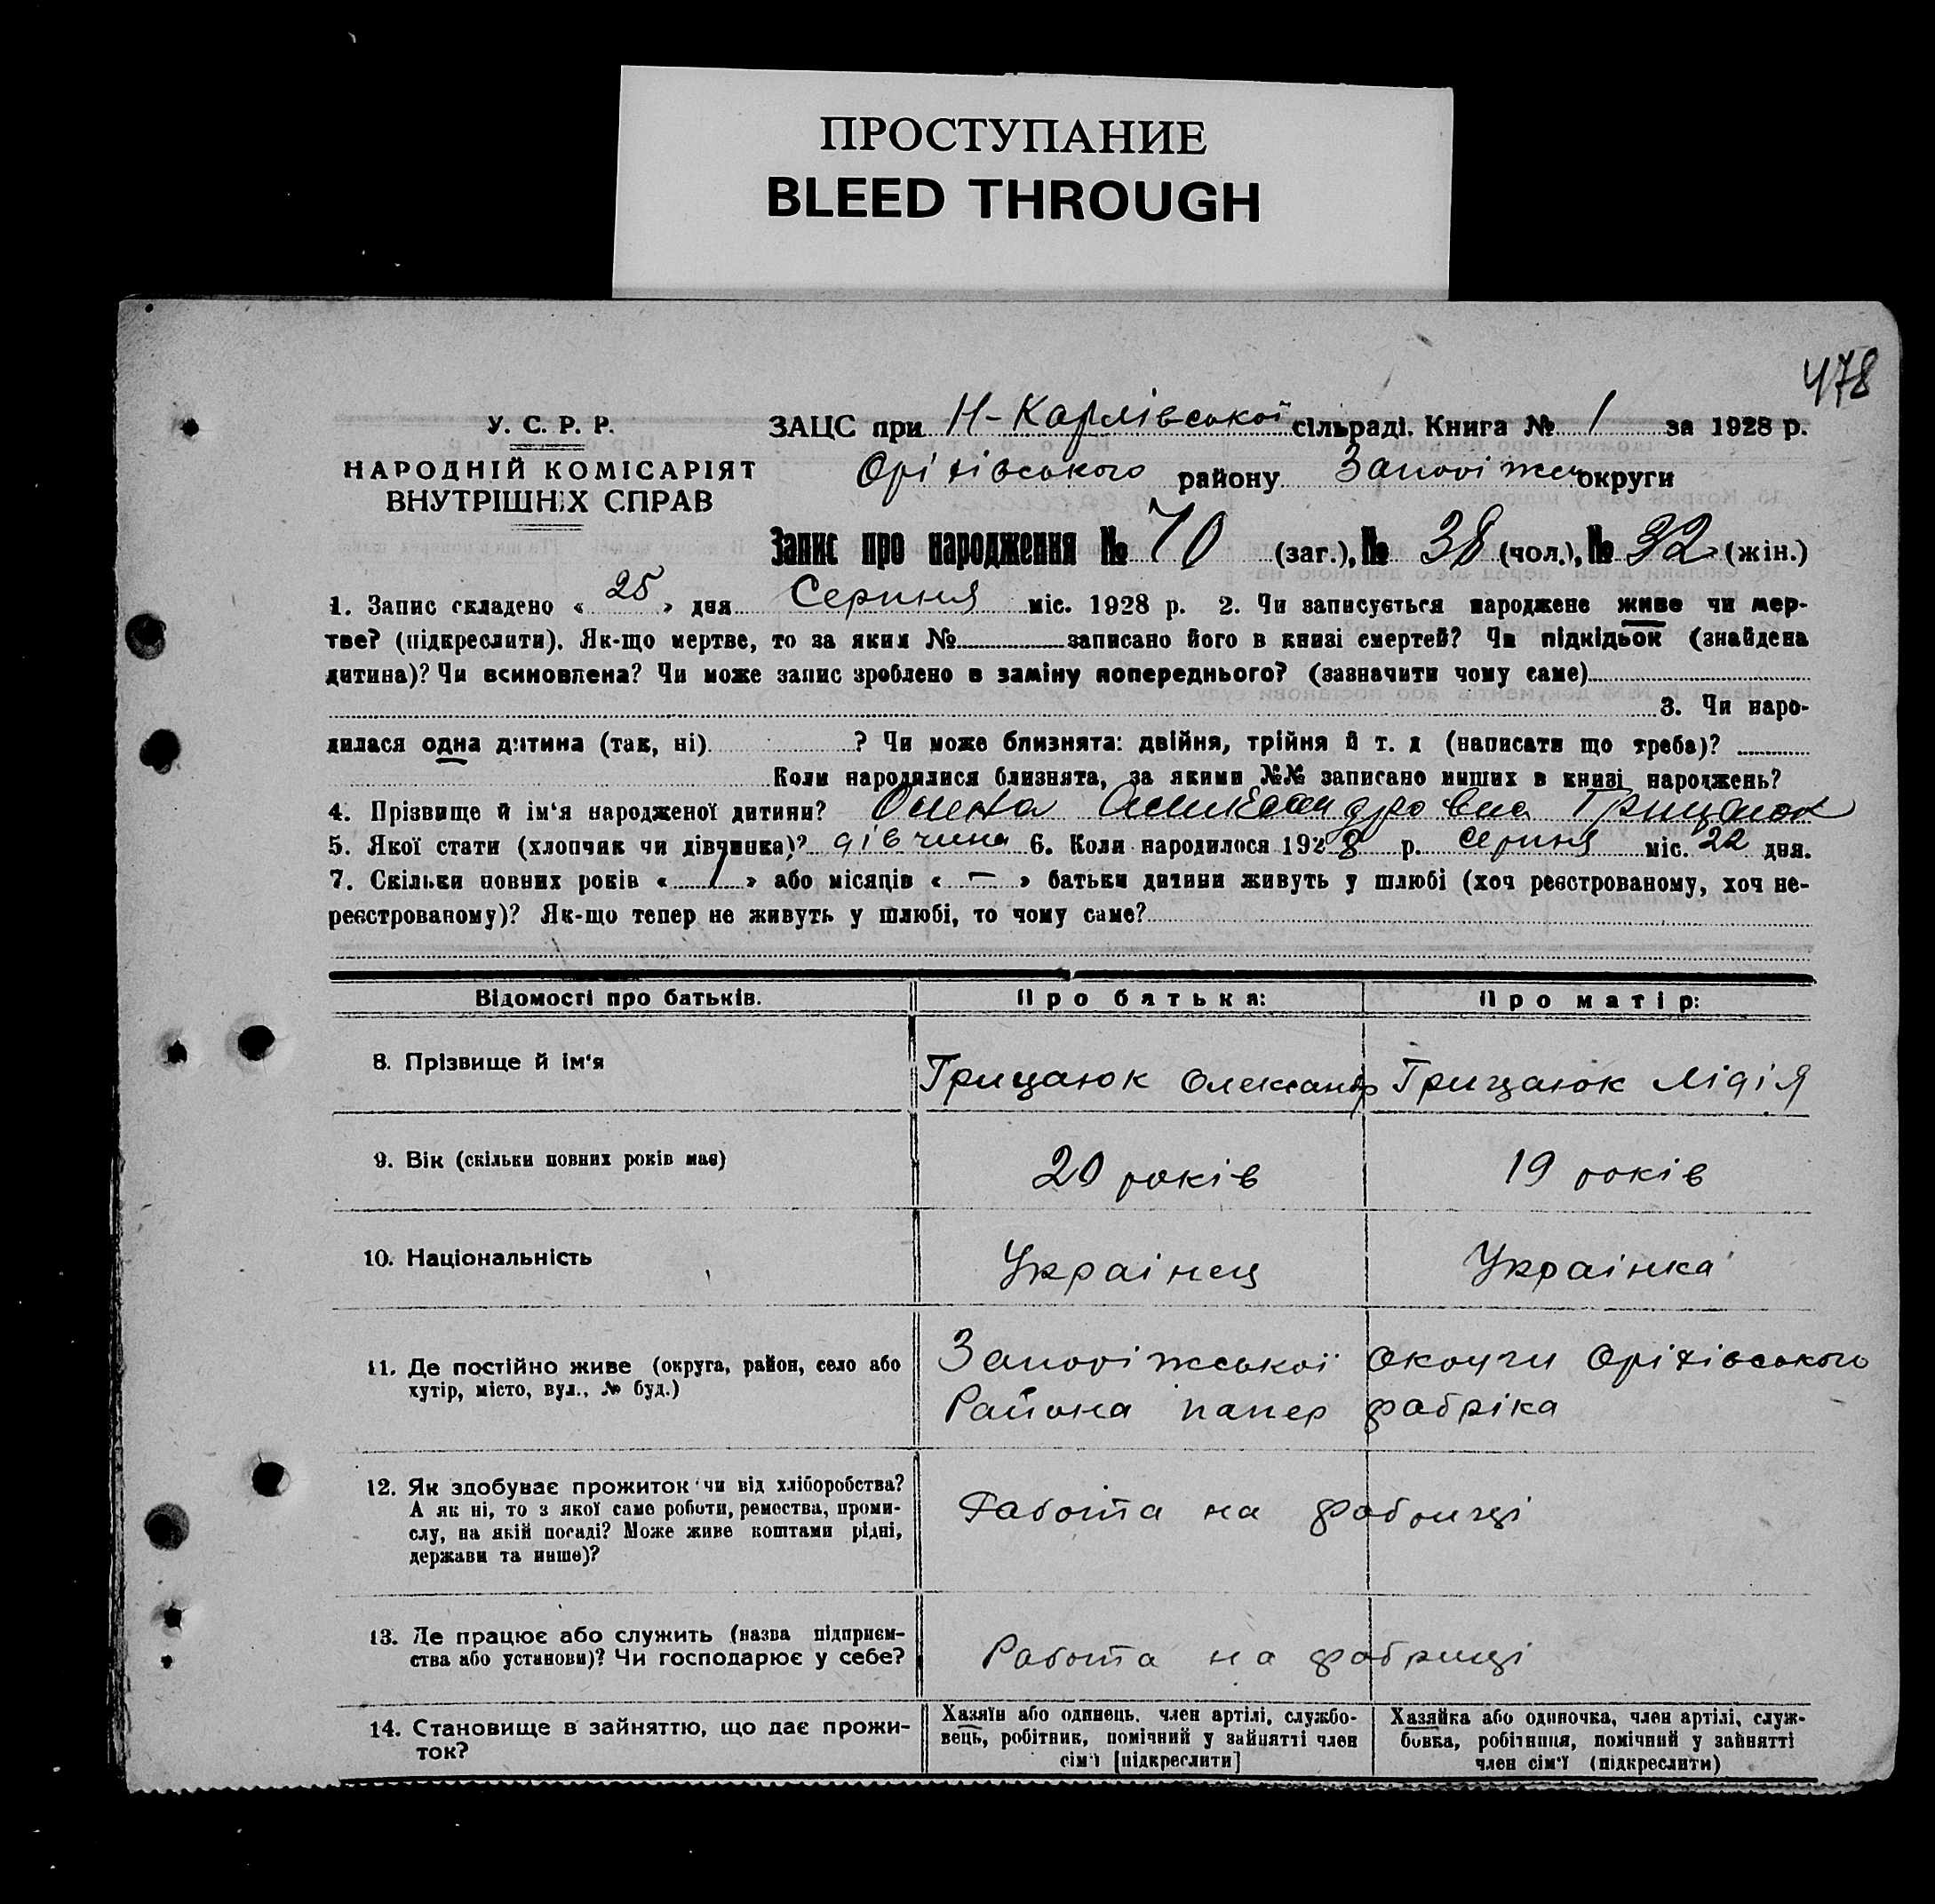 ПРОСТУПАНИЕ
BLEED THROUGH
478
У. С. Р. Р.
НАРОДНІЙ КОМІСАРІЯТ
ВНУТРІШНІХ СПРАВ
ЗАЦС при Н-Карлівської сільраді. Книга № 1 за 1928 р.
Оріхівського району Запоріжск округи
Запис про народження № 70 (заг.), № 38 (чол.), № 32 (жін.)
1. Запис складено « 25 » дня Серпня міс. 1928 р. 2. Чи записується народжене живе чи мер-
тве? (підкреслити). Як-що мертве, то за яким № записано його в книзі смертей? Чи підкідьок (знайдена
дитина)? Чи всиновлена? Чи може запис зроблено в заміну попереднього? (зазначити чому саме)
3. Чи наро-
дилася одна дитина (так, ні) ? Чи може близнята: двійня, трійня й т. д (написати що треба)?
Коли народилися близнята, за якими №№ записано инших в книзі народжень?
4. Прізвище й ім'я народженої дитини? Олена Олександровна Грицаюк
5. Якої стати (хлопчик чи дівчинка)? дівчина 6. Коли народилося 1928 р. серпня міс. 22 дня.
7. Скільки повних років « 1 » або місяців « — » батьки дитини живуть у шлюбі (хоч реєстрованому, хоч не-
реєстрованому)? Як-що тепер не живуть у шлюбі, то чому саме?
Відомості про батьків. Про батька: Про матір:
8. Прізвище й ім'я Грицаюк Олександр Грицаюк Лідія
9. Вік (скільки повних років має) 20 років 19 років
10. Національність Українец Українка
11. Де постійно живе (округа, район, село або
хутір, місто, вул., № буд.)
Запоріжської округи Оріхівського
Района папер фабріка
12. Як здобуває прожиток чи від хліборобства?
А як ні, то з якої саме роботи, ремества, проми-
слу, на якій посаді? Може живе коштами рідні,
держави та инше)?
Работа на фабриці
13. Де працює або служить (назва підприєм-
ства або установи)? Чи господарює у себе?
Работа на фабриці
14. Становище в зайняттю, що дає прожи-
ток?
Хазяїн або одинець, член артілі, службо-
вець, робітник, помічний у зайнятті член
сім'ї [підкреслити]
Хазяйка або одиночка, член артілі, служ-
бовка, робітниця, помічний у зайнятті
член сім'ї (підкреслити)